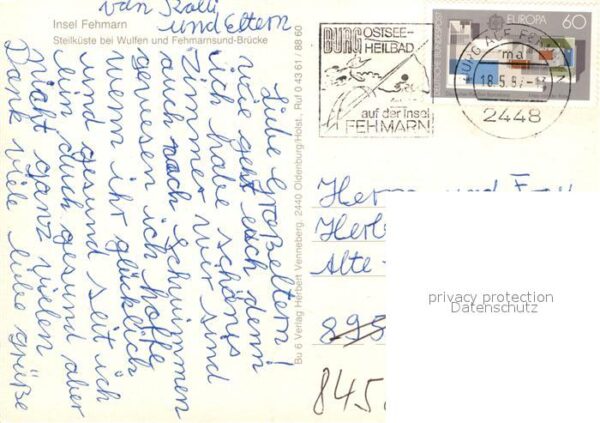 Insel Fehmarn
Steilküste bei Wulfen und Fehmarnsund-Brücke
Liebe Großeltern!
wie geht euch denn
ich habe schönes
zimmer wir sind
auch nach Schwimmen
gewesen ich hoffe
wenn ihr glücklich
und gesund seit ich
bin auch gesund aber
nicht ganz vielen
Dank viele liebe grüße
von Kalli
und Eltern
Bu 6 Verlag Herbert Venneberg, 2440 Oldenburg/Holst., Ruf 0 43 61 / 88 60
BURG OSTSEE-
HEILBAD
auf der Insel
FEHMARN
DEUTSCHE BUNDESPOST
EUROPA 60
BURG AUF FEHMARN
ma
18.5.87
2448
Herrn und Frau
Herb
Alte
895
845
privacy protection
Datenschutz